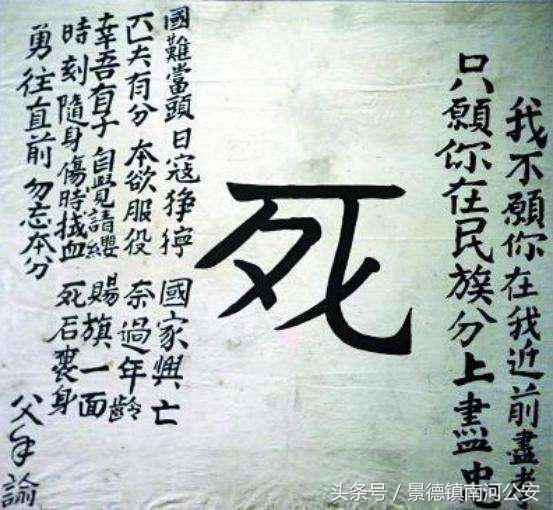 我不願你在我近前盡孝
只願你在民族分上盡忠
死
國難當頭 日寇猙獰 國家興亡
匹夫有分 本欲服役 奈過年齡
幸吾有子 自覺請纓 賜旗一面
時刻隨身 傷時拭血 死后裹身
勇往直前 勿忘本分
父手諭
头条号／景德镇南河公安